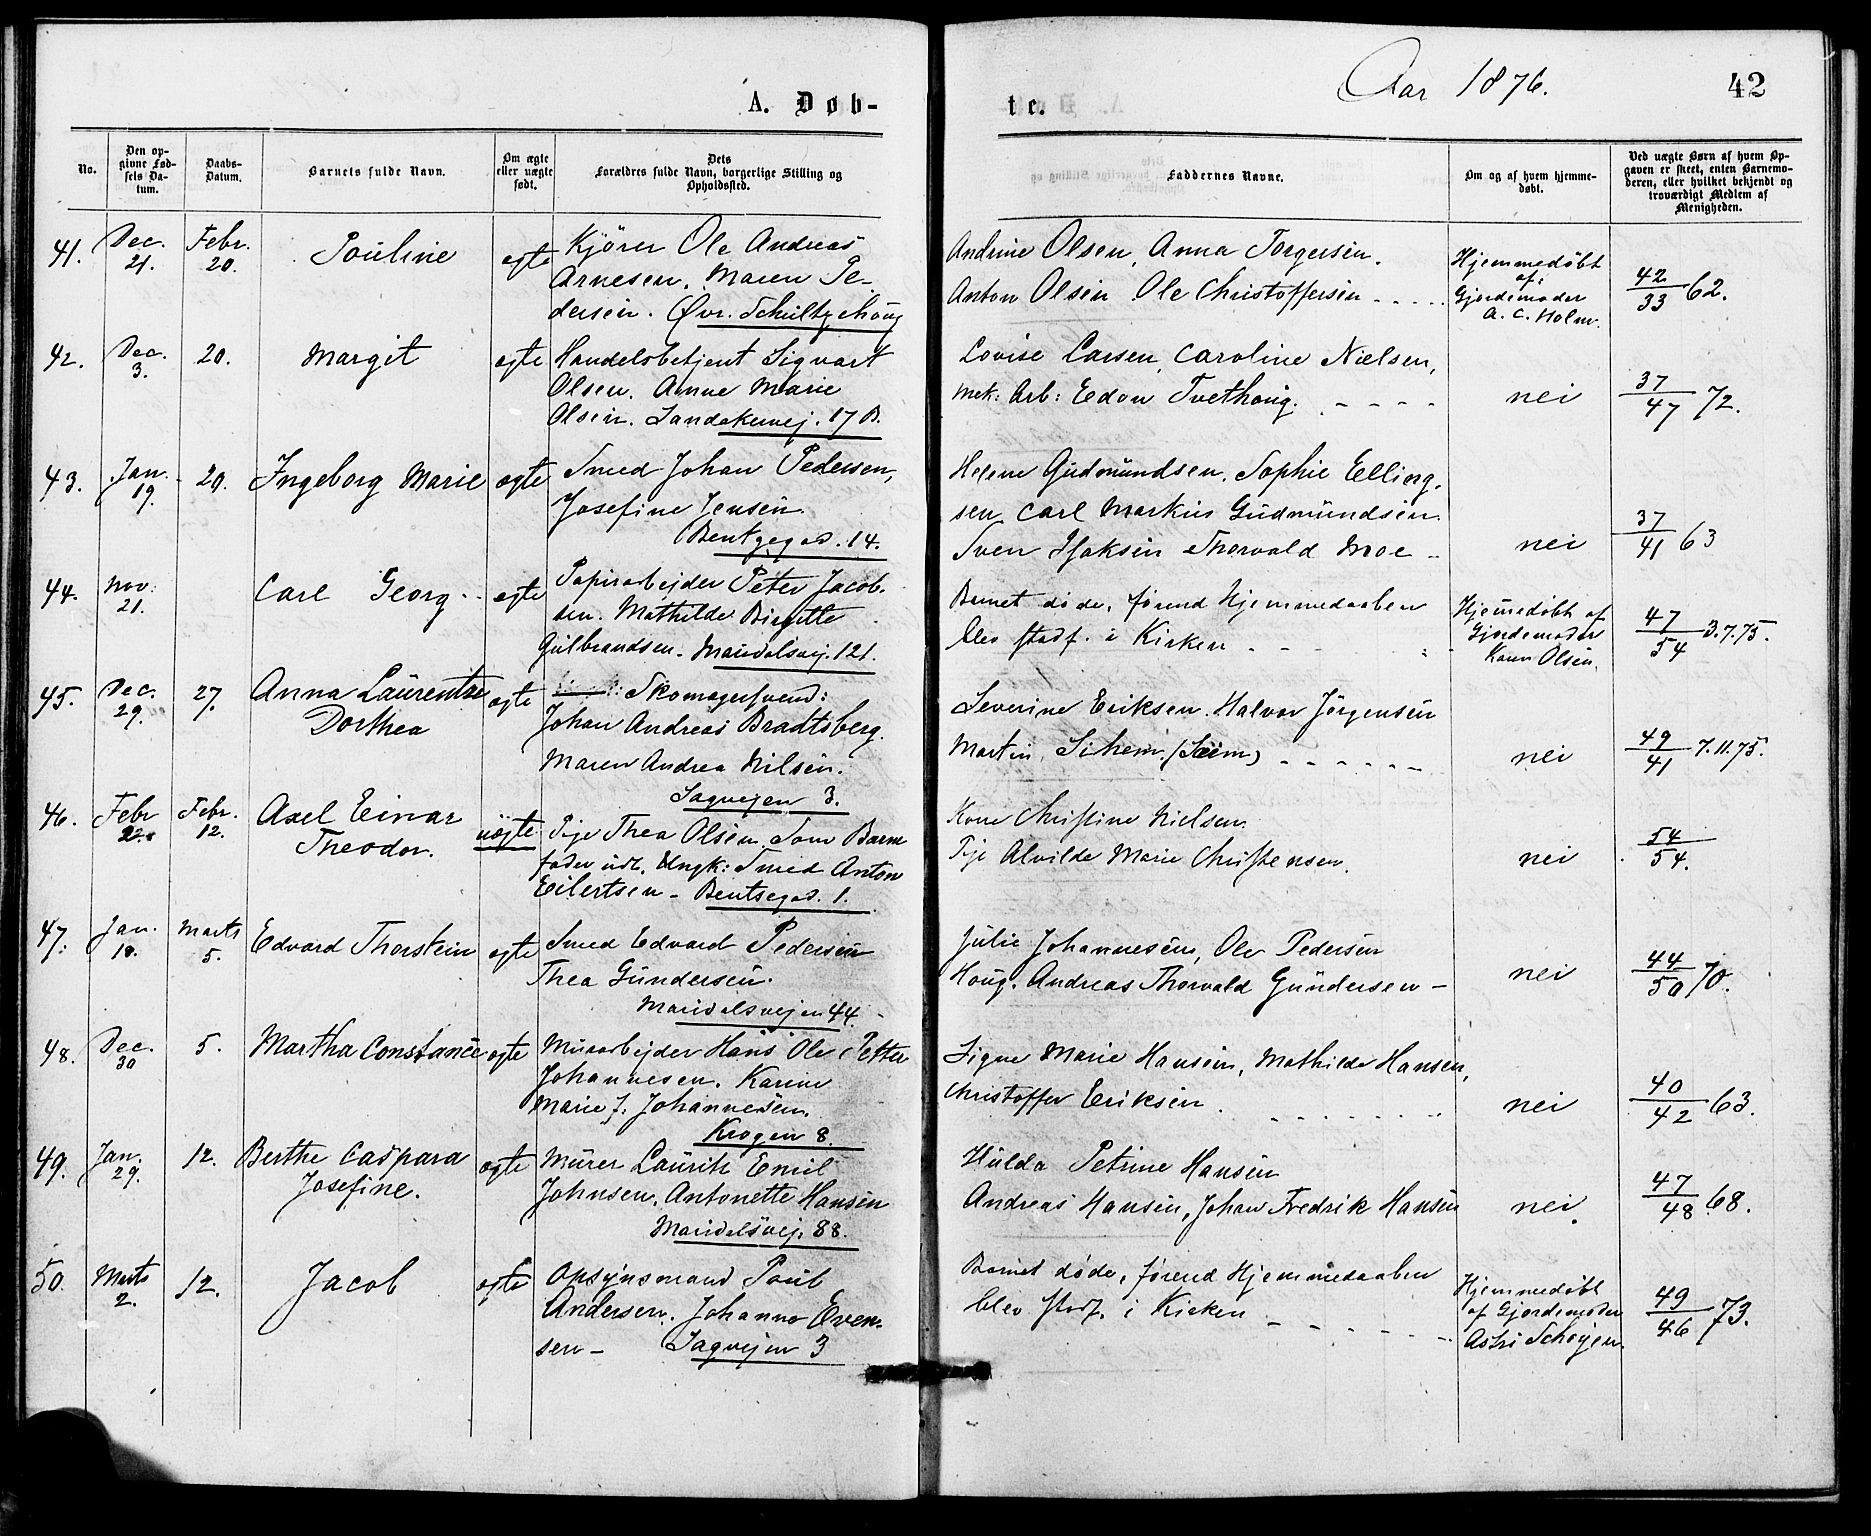 A. Døb-
te.
Aar 1876.
42
No.
Den op-
givne Fød-
sels Da-
tum.
Daabs-
Datum.
Barnets fulde Navn.
Om ægte
eller uægte
født.
Dets
Forældres fulde Navn, borgerlige Stilling og
Opholdssted.
Faddernes Navne.
Om og af hvem hjemme-
døbt.
Ved uægte Børn af hvem Op-
gaven er skeet, enten Barnemo-
deren, eller hvilket bekjendt og
troværdigt Medlem af
Menigheden.
41. Dec. 21. Febr. 20. Pouline ægte
Kjører Ole Andreas
Arnesen. Maren Pe-
dersen. Øvr. Schultzehoug
Andrine Olsen, Anna Torgersen.
Anton Olsen Ole Christoffersen
Hjemmedøbt
af
Gjordemoder
A. C. Holm.
42/33 62.
42. Dec. 3. 20. Margit ægte
Handelsbetjent Sigvart
Olsen. Anne Marie
Olsen. Sandakervej. 17 B.
Lovise Larsen, Caroline Nielsen,
Mek: Arb: Edon Tvethoug.
nei
37/47 72.
43. Jan. 19. 20. Ingeborg Marie ægte
Smed Johan Pedersen,
Josefine Jensen.
Bentzegad. 14.
Helene Gudmundsen. Sophie Elling-
sen Carl Markus Gudmundsen.
Sven Isaksen Thorvald Moe
nei
37/41 63
44. Nov. 21. Carl Georg ægte
Papirarbejder Peter Jacob-
sen. Mathilde Birgitte
Gulbrandsen. Maridalsvej. 121.
Barnet døde, førend Hjemmedaaben
blev stadf. i Kirken
Hjemmedøbt af
Gjordemoder
Karen Olsen.
47/54 3.7.75.
45. Dec. 29. 27. Anna Laurentze
Dorthea ægte
Skomagersvend:
Johan Andreas Bradtsberg.
Maren Andrea Nilsen.
Sagvejen 3.
Severine Eriksen. Halvor Jörgensen
Martin Siheim (Seim)
nei
49/41 7.11.75.
46. Febr. Febr. 12. Axel Einar
Theodor. uægte
Pige Thea Olsen. Som Barne
fader udl. Ungk: Smed Anton
Eilertsen - Bentsegad. 1.
Kone Christine Nielsen.
Pige Alvilde Marie Christensen.
nei
54/54.
47. Jan. 18. Marts 5. Edvard Thorstein ægte
Smed Edvard Pedersen
Thea Gundersen.
Maridalsvejen 44.
Julie Johannesen, Ole Pedersen
Houg. Andreas Thorvald Gundersen
nei
44/50 70.
48. Dec. 30 5. Martha Constance ægte
Murarbejder Hans Ole Petter
Johannesen. Karine
Marie J. Johannesen.
Krogen 8.
Signe Marie Hansen, Mathilde Hansen,
Christoffer Eriksen.
nei
40/42 63.
49. Jan. 29. 12. Berthe Caspara
Josefine. ægte
Murer Lauritz Emil
Johnsen, Antonette Hansen
Maridalsvej. 88.
Hulda Petrine Hansen
Andreas Hansen, Johan Fredrik Hansen
nei.
47/48 68.
50. Marts 2. 12. Jacob ægte
Opsynsmand Poul
Andersen. Johanne Even-
sen - Sagvejen 3
Barnet døde, førend Hjemmedaaben
blev stadf. i Kirken
Hjemmedøbt
af Gjordemoder
Astri Schøyen.
49/46 73.